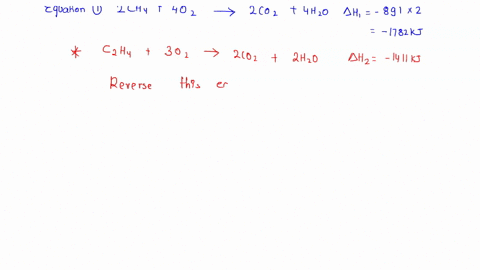 Equation ① 2CH₄ + 4O₂ → 2CO₂ + 4H₂O ΔH₁ = -891 × 2
= -1782 KJ
* C₂H₄ + 3O₂ → 2CO₂ + 2H₂O ΔH₂ = -1411 KJ
Reverse this er